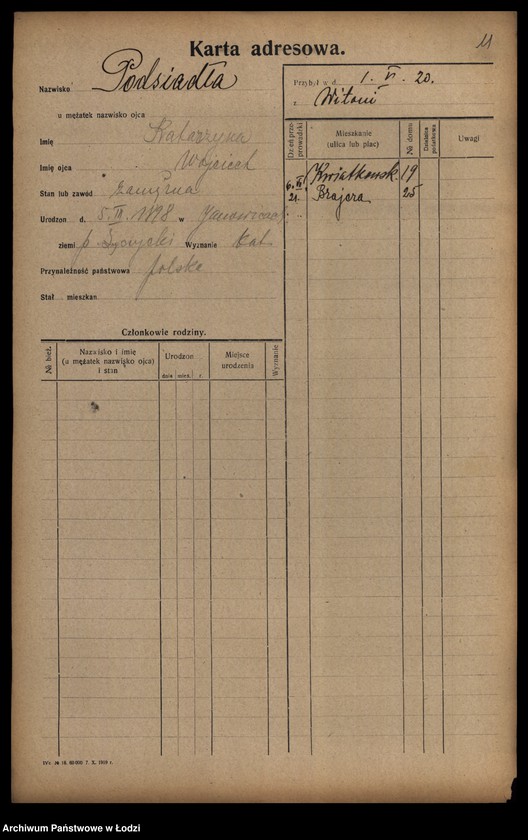 11
Karta adresowa.
Nazwisko Podsiadła
u mężatek nazwisko ojca
Imię Katarzyna
Imię ojca Wojciech
Stan lub zawód zamężna
Urodzon d. 5. 1898 w
ziemi p. Wyznanie kat.
Przynależność państwowa polska
Stał mieszkan
Przybył w d. 1. VI. 20.
z Witoni
Dzień przeprowadzki
Mieszkanie (ulica lub plac)
№ domu
Dzielnica podatkowa
Uwagi
Kwiatkowsk 19
6. VI 21. Brajera 25
Członkowie rodziny.
№ bież.
Nazwisko i imię (u mężatek nazwisko ojca) i stan
Urodzon
dnia mies. r.
Miejsce urodzenia
Wyznanie
7. X. 1919 r.
Archiwum Państwowe w Łodzi